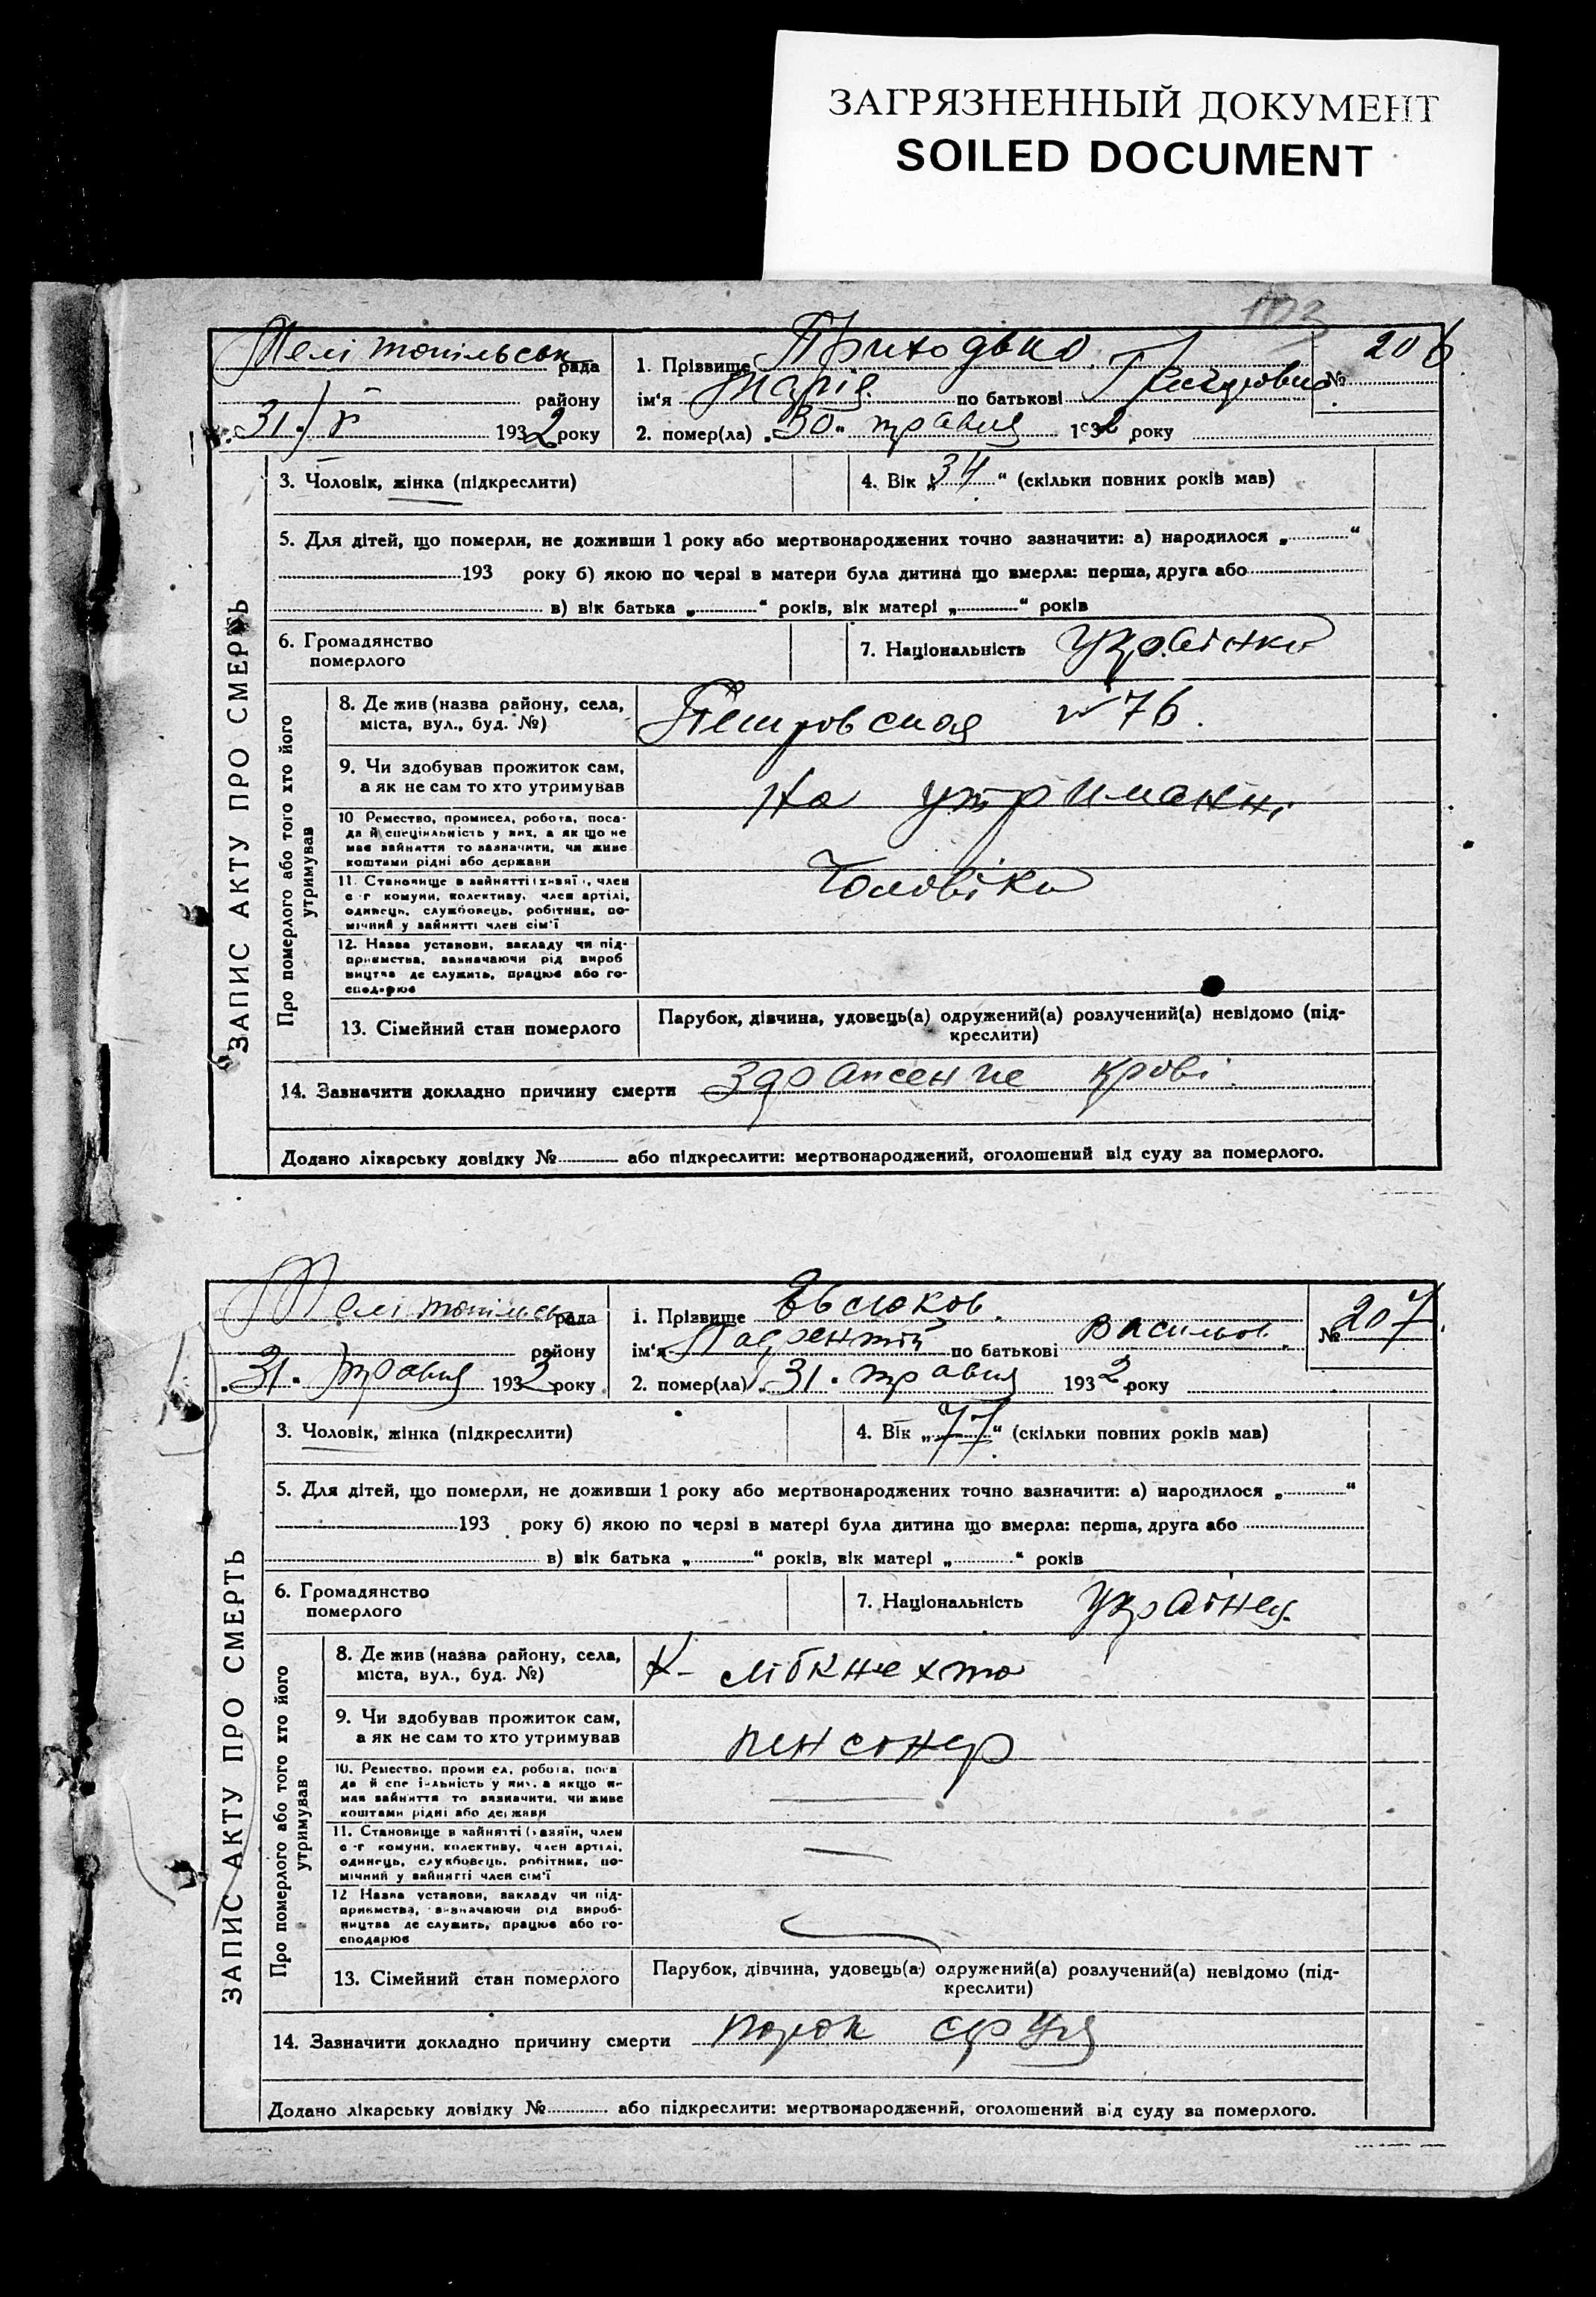 ЗАГРЯЗНЕННЫЙ ДОКУМЕНТ
SOILED DOCUMENT
103
Мелітопільськ рада
району
31/V 1932 року
1. Прізвище Приходько
ім'я Марія по батькові
№ 206
2. помер(ла) „30" травня 1932 року
ЗАПИС АКТУ ПРО СМЕРТЬ
3. Чоловік, жінка (підкреслити)
4. Вік „34" (скільки повних років мав)
5. Для дітей, що померли, не доживши 1 року або мертвонароджених точно зазначити: а) народилося „ "
193 року б) якою по черзі в матери була дитина що вмерла: перша, друга або
в) вік батька „ " років, вік матері „ " років
6. Громадянство
померлого
7. Національність Українка
Про померлого або того хто його
утримував
8. Де жив (назва району, села,
міста, вул., буд. №)
Петровская №76.
9. Чи здобував прожиток сам,
а як не сам то хто утримував
На утриманні
10 Ремество, промисел, робота, поса-
да й спеціяльність у них, а як що не
має зайняття то зазначити, чи живе
коштами рідні або держави
Чоловіка
11. Становище в зайнятті (хазяїн, член
с-г комуни, колективу, член артілі,
одинець, службовець, робітник, по-
мічний у зайнятті член сім'ї
12. Назва установи, закладу чи під-
приємства, зазначаючи рід вироб
ництва де служить, працює або го-
сподарює
13. Сімейний стан померлого
Парубок, дівчина, удовець(а) одружений(а) розлучений(а) невідомо (під-
креслити)
14. Зазначити докладно причину смерти крові
Додано лікарську довідку № або підкреслити: мертвонароджений, оголошений від суду за померлого.
Мелітопільськ рада
району
31. травня 1932 року
1. Прізвище Євсюков.
ім'я Лаврентій по батькові Васильов.
№ 207
2. помер(ла) 31. травня 1932 року
ЗАПИС АКТУ ПРО СМЕРТЬ
3. Чоловік, жінка (підкреслити)
4. Вік „77" (скільки повних років мав)
5. Для дітей, що померли, не доживши 1 року або мертвонароджених точно зазначити: а) народилося „ "
193 року б) якою по черзі в матері була дитина що вмерла: перша, друга або
в) вік батька „ " років, вік матері „ " років
6. Громадянство
померлого
7. Національність Українец.
Про померлого або того хто його
утримував
8. Де жив (назва району, села,
міста, вул., буд. №)
К- лібкнехта
9. Чи здобував прожиток сам,
а як не сам то хто утримував
пенсонер
10. Ремество, промисел, робота, поса
да й спеціяльність у них, а якщо не
має зайняття то зазначити, чи живе
коштами рідні або держави
11. Становище в зайнятті (хазяїн, член
с-г комуни, колективу, член артілі,
одинець, службовець, робітник, по-
мічний у зайнятті член сім'ї
12 Назва установи, закладу чи під-
приємства, зазначаючи рід вироб-
ництва де служить, працює або го-
сподарює
13. Сімейний стан померлого
Парубок, дівчина, удовець(а) одружений(а) розлучений(а) невідомо (під-
креслити)
14. Зазначити докладно причину смерти порок
Додано лікарську довідку № або підкреслити: мертвонароджений, оголошений від суду за померлого.